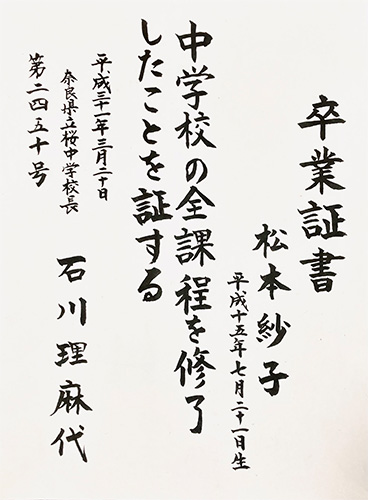 卒業証書
松本紗子
平成十五年七月二十一日生
中学校の全課程を修了
したことを証する
平成三十一年三月二十日
奈良県立桜中学校長
石川理麻代
第二四五十号